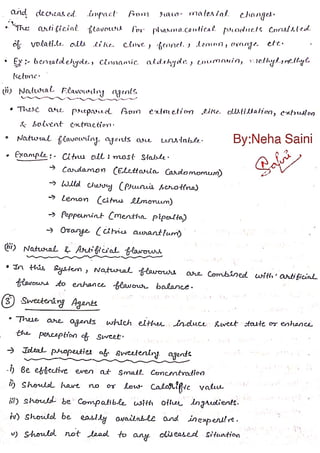 and decreased impact from raw material changes.
• The artificial flavours for pharmaceutical products consisted
of volatile oils like clove, fennel, lemon, orange etc.
• Ex:- benzaldehyde, Cinnamic aldehyde,
Ketone.
(ii) Natural Flavouring agents
• These are prepared from extraction like distillation, extrusion
& solvent extraction.
• Natural flavouring agents are unstable.
By:Neha Saini
N Saini
• Example:- Citrus oil: most stable.
→ Cardamon (Elettaria Cardamomum)
→ Wild cherry (Prunus Serotina)
→ Lemon (Citrus limonum)
→ Peppermint (Mentha pipalta)
→ Orange (Citrus aurantium)
(iii) Natural & Artificial flavours
• In this system, Natural flavours are combined with artificial
flavours to enhance flavour balance.
(8) Sweetening Agents
• These are agents which either induce sweet taste or enhance
the perception of sweet.
→ Ideal properties of sweetening agents
i) Be effective even at small concentration
ii) Should have no or low Calorific value
iii) should be Compatible with other ingredients.
iv) Should be easily available and inexpensive.
v) Should not lead to any diseased situation